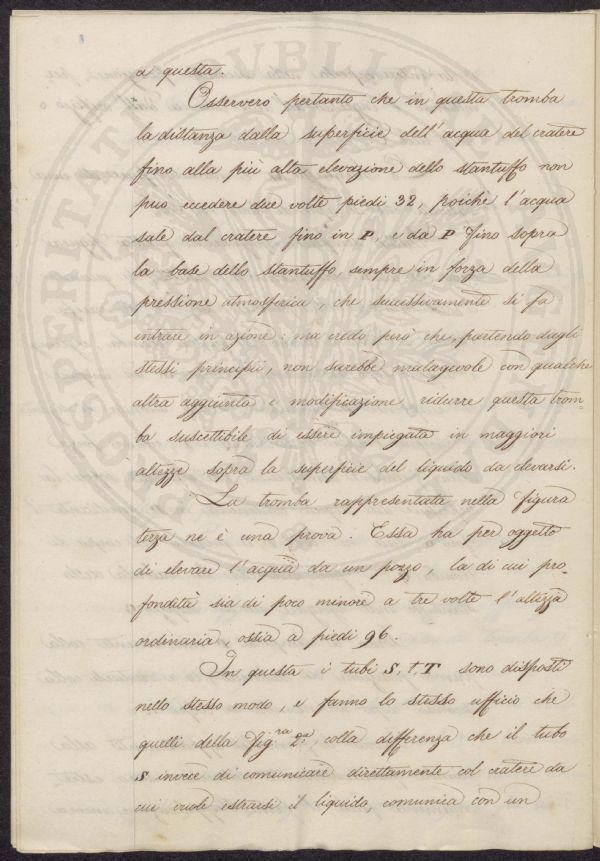 a questa.
Osserverò pertanto che in questa tromba
la distanza dalla superficie dell'acqua del cratere
fino alla più alta elevazione dello stantuffo non
può eccedere due volte piedi 32, poichè l'acqua
sale dal cratere fino in P, e da P fino sopra
la base dello stantuffo, sempre in forza della
pressione atmosferica, che successivamente si fa
entrare in azione: ma credo però che, partendo dagli
stessi principii, non sarebbe malagevole con qualche
altra aggiunta e modificazione ridurre questa trom=
ba suscettibile di essere impiegata in maggiori
altezze sopra la superficie del liquido da elevarsi.
La tromba rappresentata nella figura
terza ne è una prova. Essa ha per oggetto
di elevare l'acqua da un pozzo, la di cui pro=
fondità sia di poco minore a tre volte l'altezza
ordinaria, ossia a piedi 96.
In questa i tubi S, t, T sono disposti
nello stesso modo, e fanno lo stesso ufficio che
quelli della Fig.ra 2.a, colla differenza che il tubo
S invece di comunicare direttamente col cratere da
cui vuole estrarsi il liquido, comunica con un